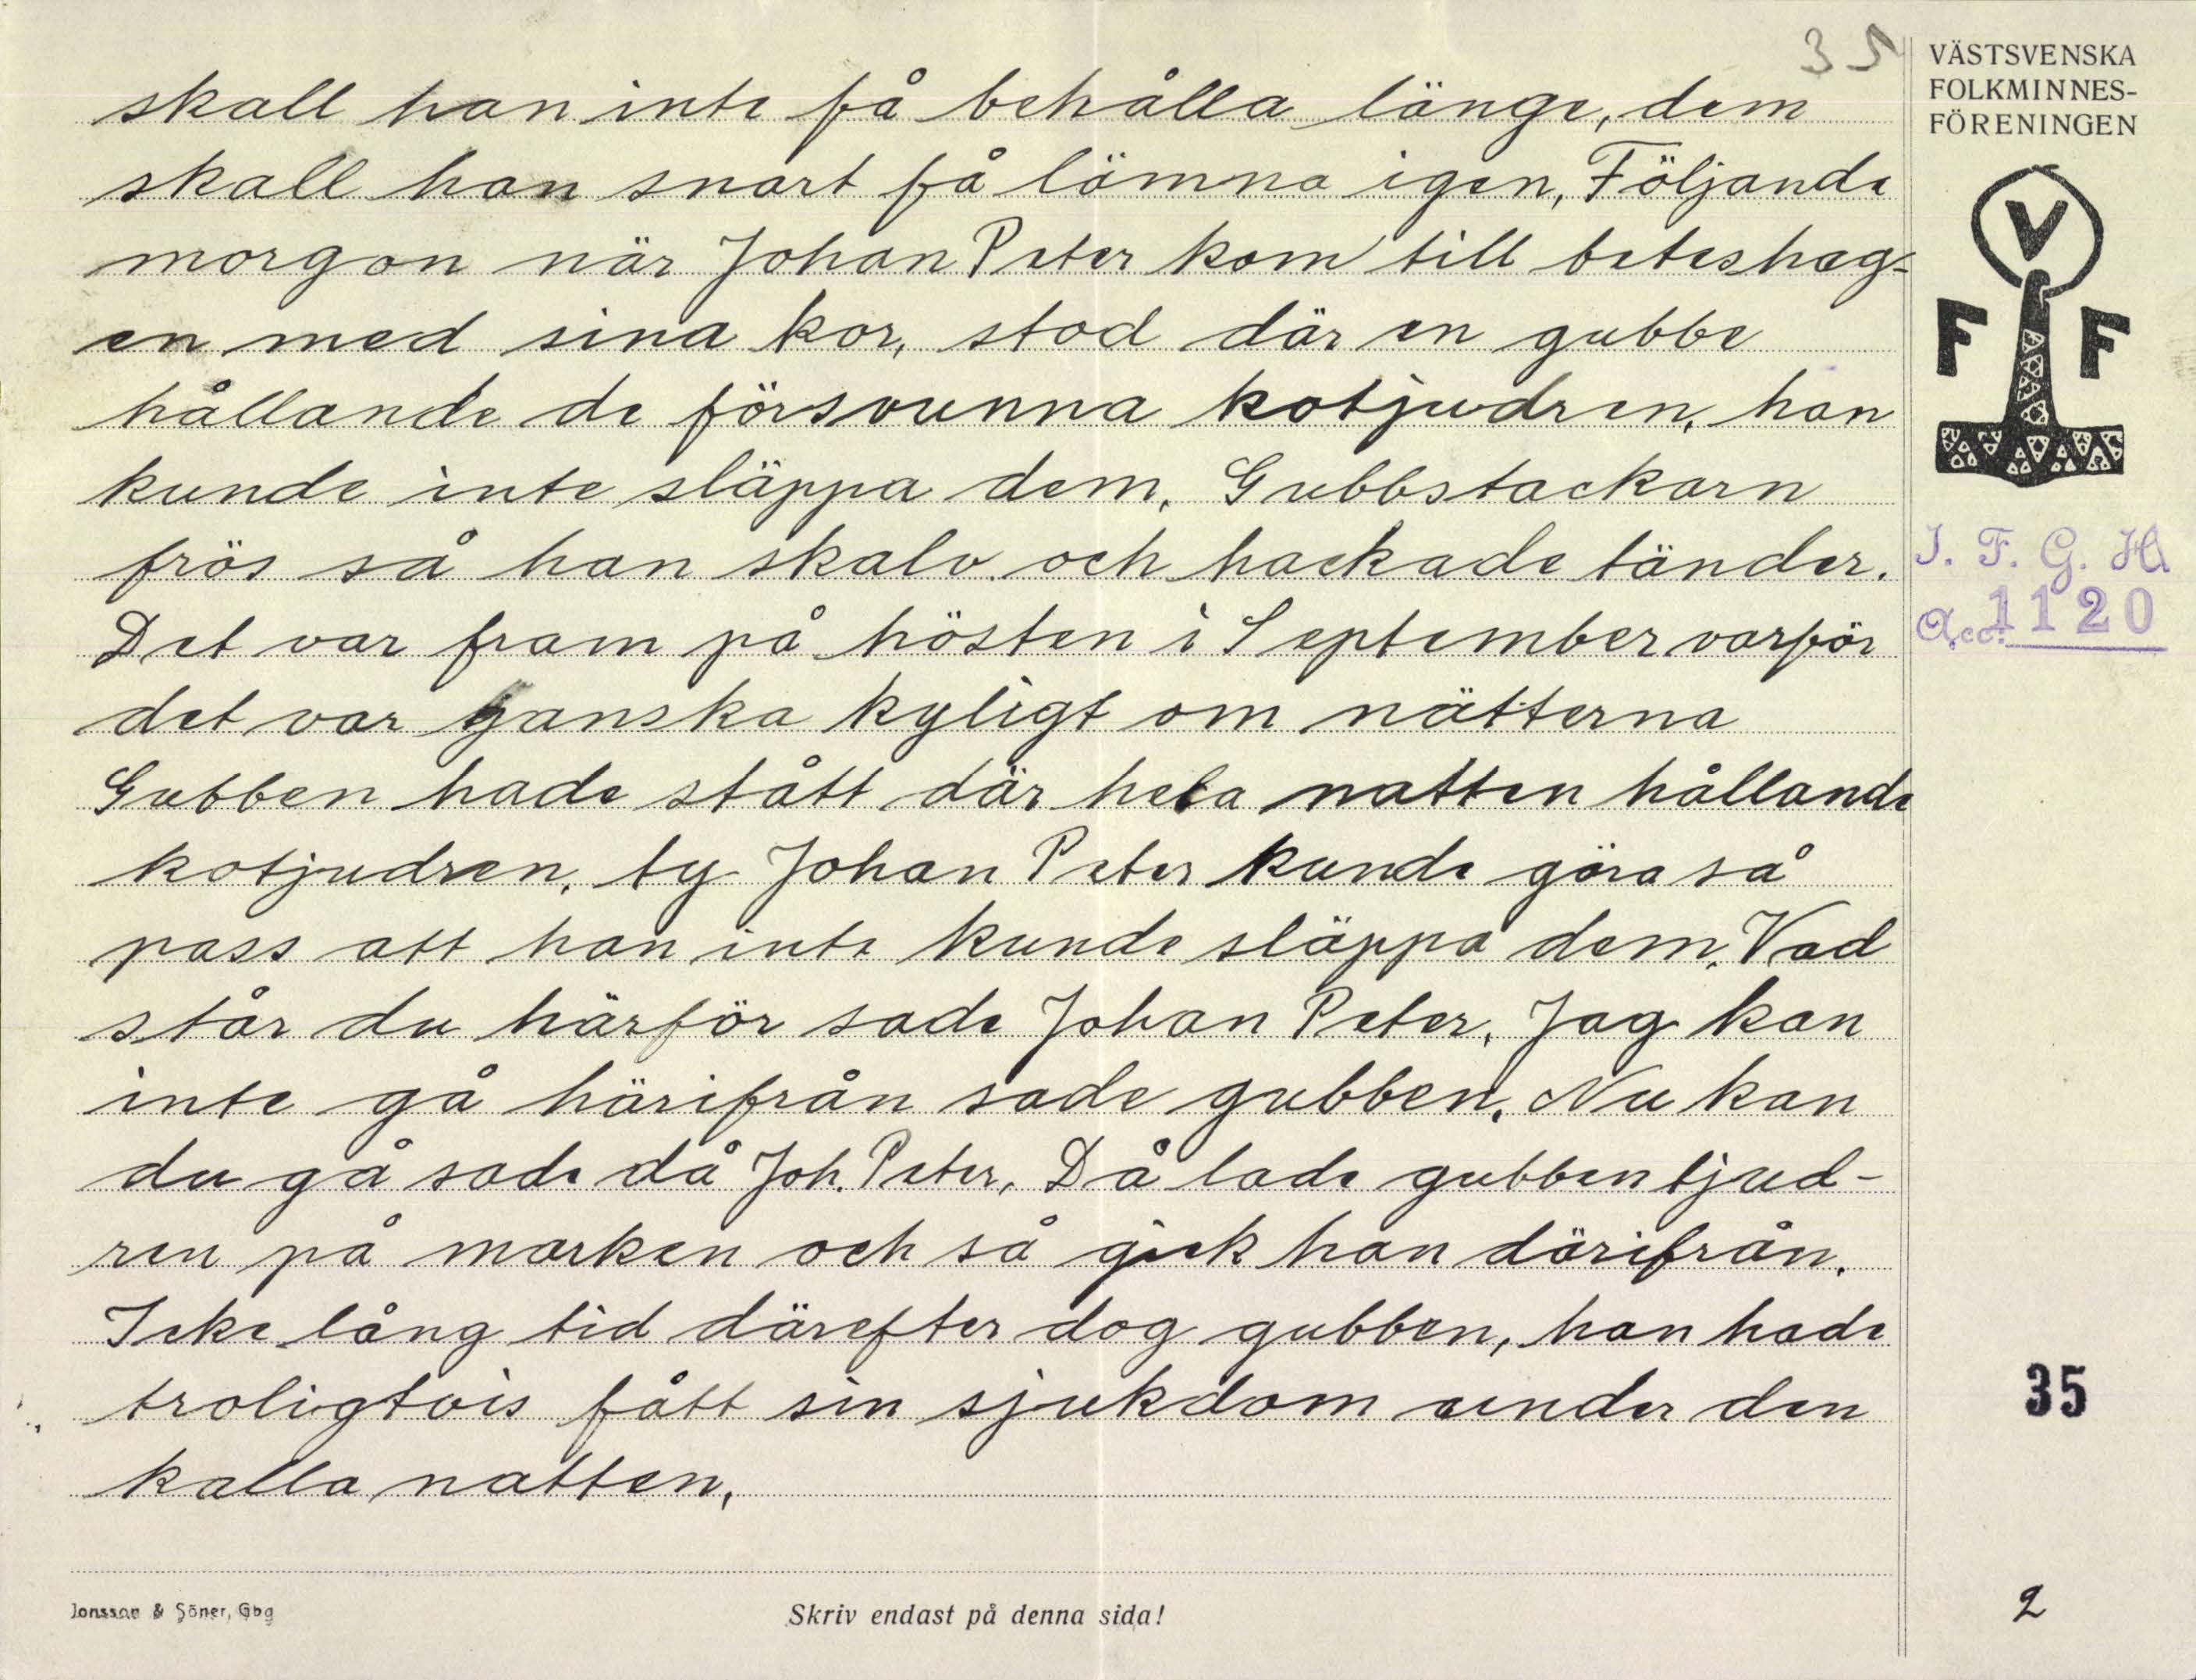 35
skall han inte få behålla länge, dem
skall han snart få lämna igen, Följande
morgon när Johan Peter kom till beteshag-
en med sina kor, stod där en gubbe
hållande de försvunna kotjudren, han
kunde inte släppa dem, Gubbstackarn
frös så han skalv och hackade tänder.
Det var fram på hösten i September varför
det var ganska kyligt om nätterna
Gubben hade stått där hela natten hållande
kotjudren, ty Johan Peter kunde göra så
pass att han inte kunde släppa dem, Vad
står du härför sade Johan Peter, Jag kan
inte gå härifrån sade gubben, Nu kan
du gå sade då Joh. Peter, Då lade gubben tjud-
ren på marken och så gick han därifrån.
Icke lång tid därefter dog gubben, han hade
troligtvis fått sin sjukdom under den
kalla natten,
Jonsson & Söner, Gbg
Skriv endast på denna sida!
VÄSTSVENSKA
FOLKMINNES-
FÖRENINGEN
V
F F
I. F. G. H.
Acc. 1120
35
2